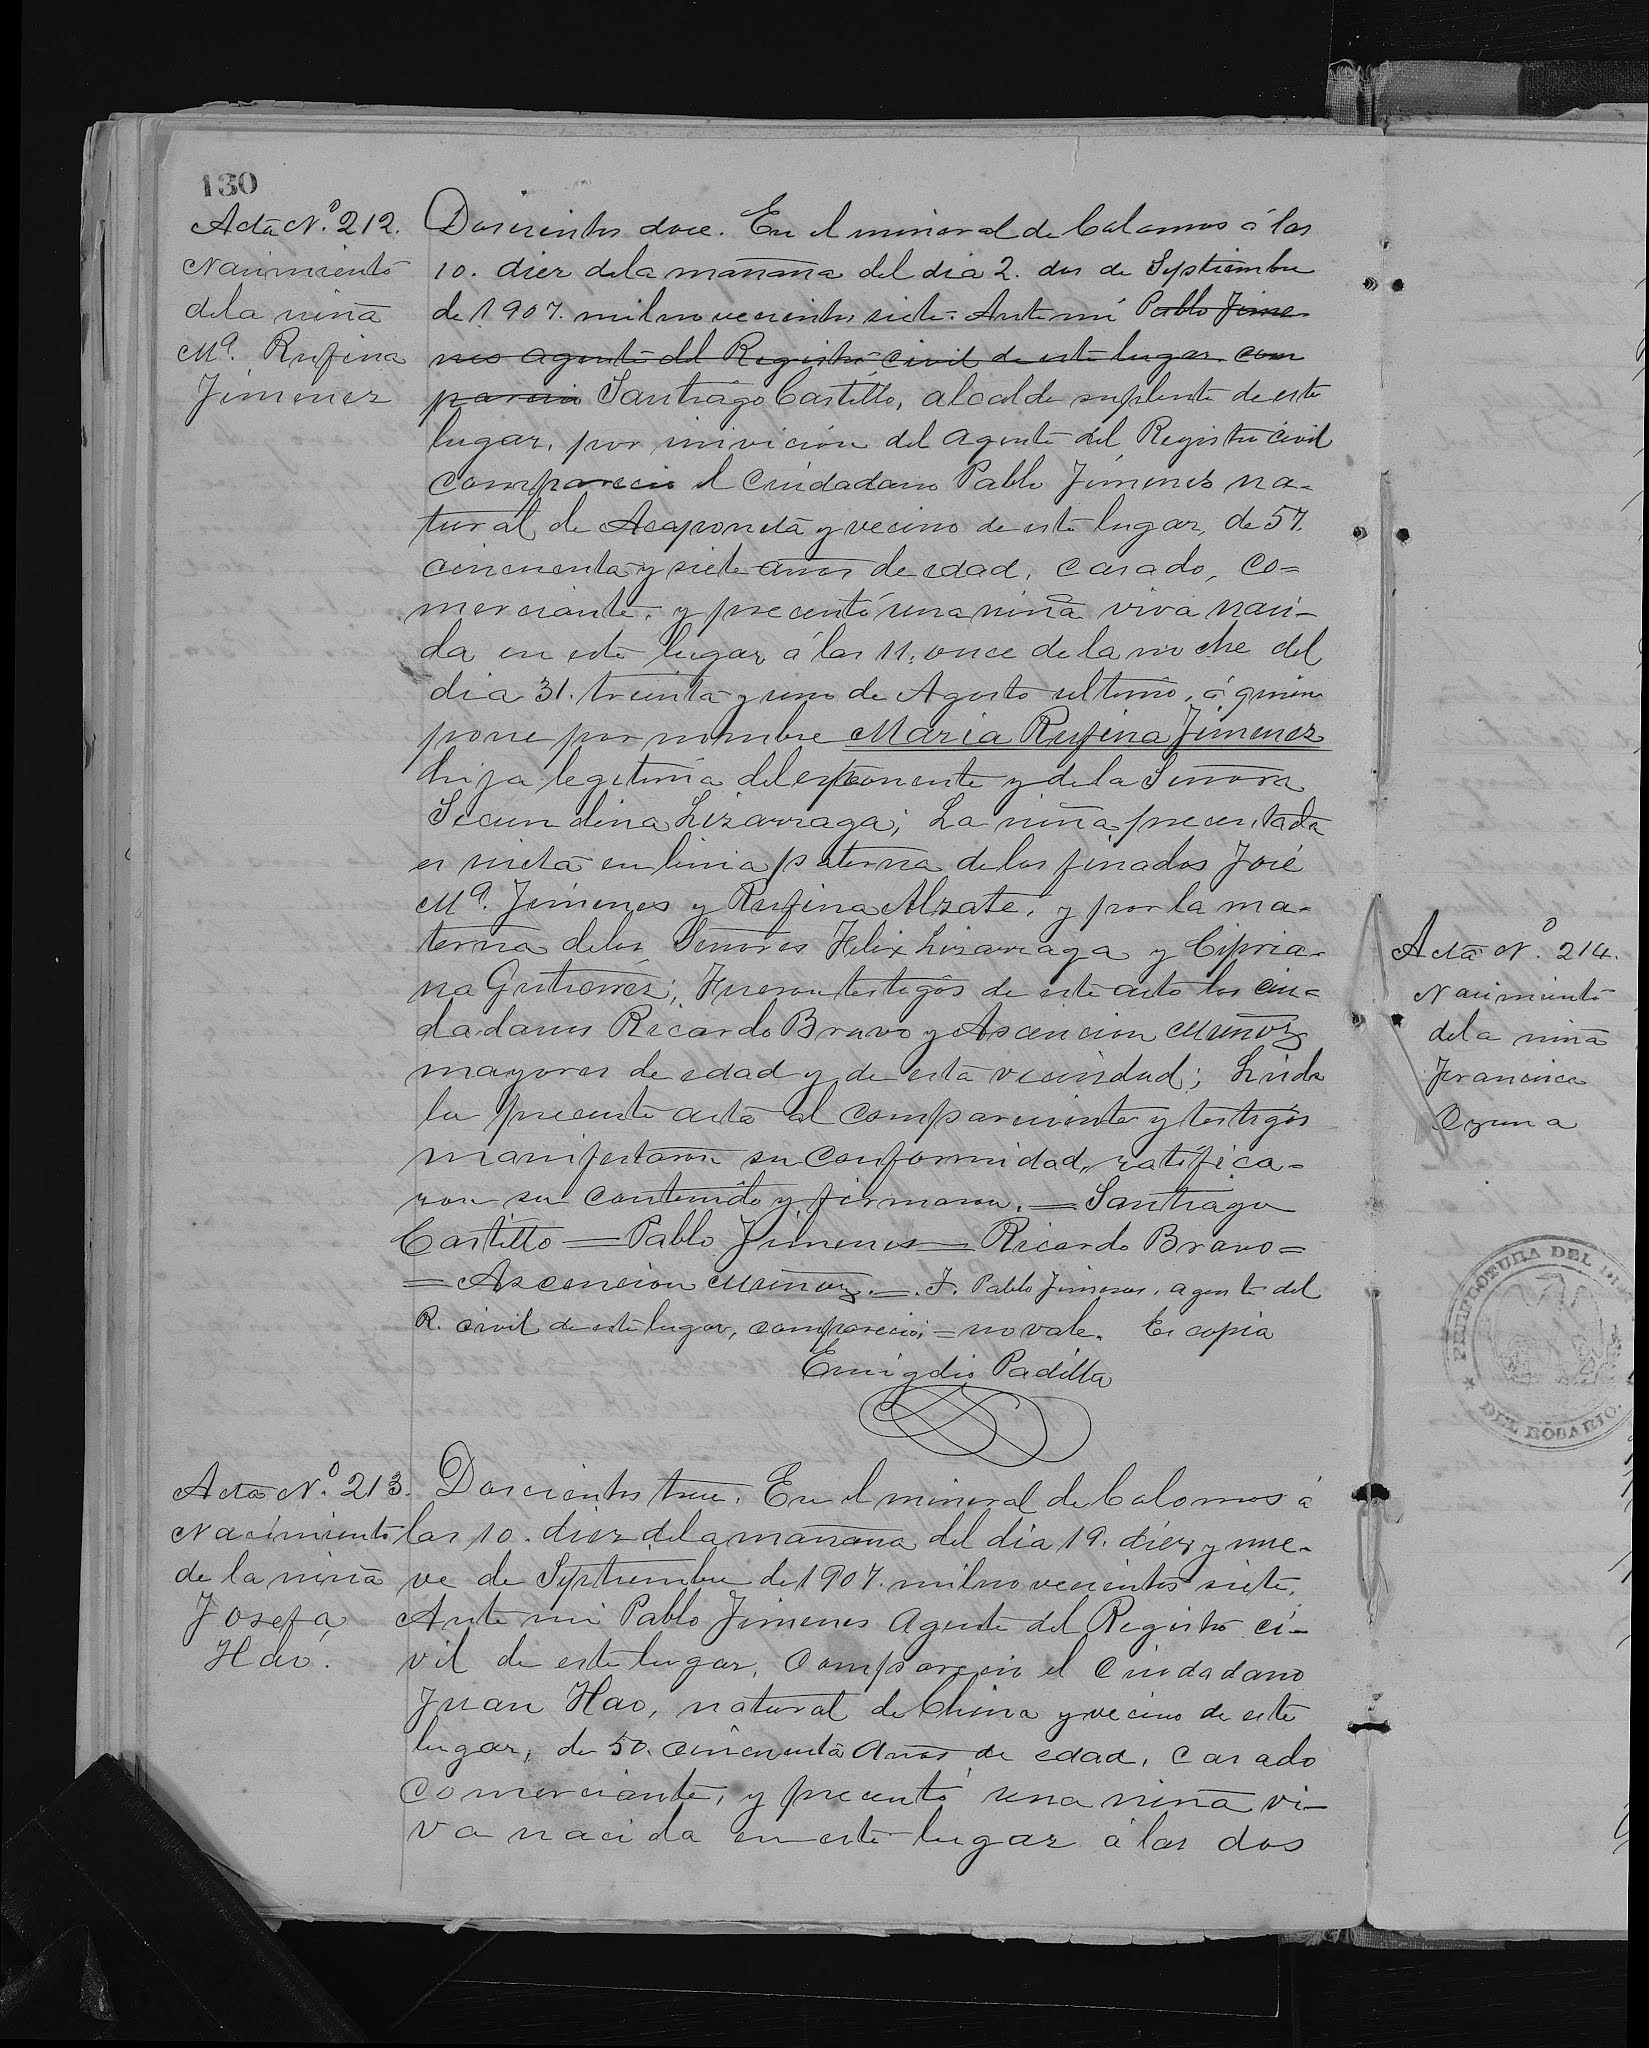 130
Acta N.º 212.
Nacimiento
de la niña
Mª. Rufina
Jimenez
Doscientos doce. En el mineral de Colomos á las
10. diez dela mañana del dia 2. dos de Septiembre
de 1907. mil novecientos siete. Ante mi Pablo Jime-
nes agente del Registro civil de este lugar com
parecio Santiago Castillo, alcalde suplente de este
lugar, por inivición del agente del Registro civil
comparecio el Ciudadano Pablo Jimenes na-
tural de Acaponeta y vecino de este lugar, de 57.
cincuenta y siete años de edad, casado, co=
merciante, y precentó una niña viva naci-
da en este lugar á las 11. once de la noche del
dia 31. treinta y uno de Agosto ultimo, á quien
pone por nombre Maria Rufina Jimenez
hija legitima del esponente y de la Señora
Secundina Lizarraga; La niña precentada
es nieta en linia paterna de los finados José
Mª. Jimenes y Rufina Alzate, y por la ma-
terna delos Señores Felix Lizarraga y Cipria-
na Gutierrez; Fueron testigos de este acto los ciu=
dadanos Ricardo Bravo y Ascencion Muñoz
mayores de edad y de esta vecindad; Leida
la precente acta al compareciente y testigos
manifestaron su conformidad, ratifica-
ron su contenido y firmaron. = Santiago
Castillo = Pablo Jimenes = Ricardo Bravo =
= Ascencion Muñoz. =. T. Pablo Jimenes, agente del
R. civil de este lugar, comparecio; = no vale. Es copia
Emigdio Padilla
Acta N.º 213.
Nacimiento
de la niña
Josefa
Hao.
Doscientos trece. En el mineral de Colomos á
las 10. diez dela mañana del dia 19. diez y nue-
ve de Septiembre de 1907. mil novecientos siete.
Ante mi Pablo Jimenes Agente del Registro ci-
vil de este lugar, Comparecio el Ciudadano
Juan Hao, natural de China y vecino de este
lugar, de 50. cincuenta años de edad, casado
comerciante, y precentó una niña vi-
va nacida en este lugar á las dos
Acta N.º 214.
Nacimiento
dela niña
Francisca
Ozuna
DEL ROSARIO.